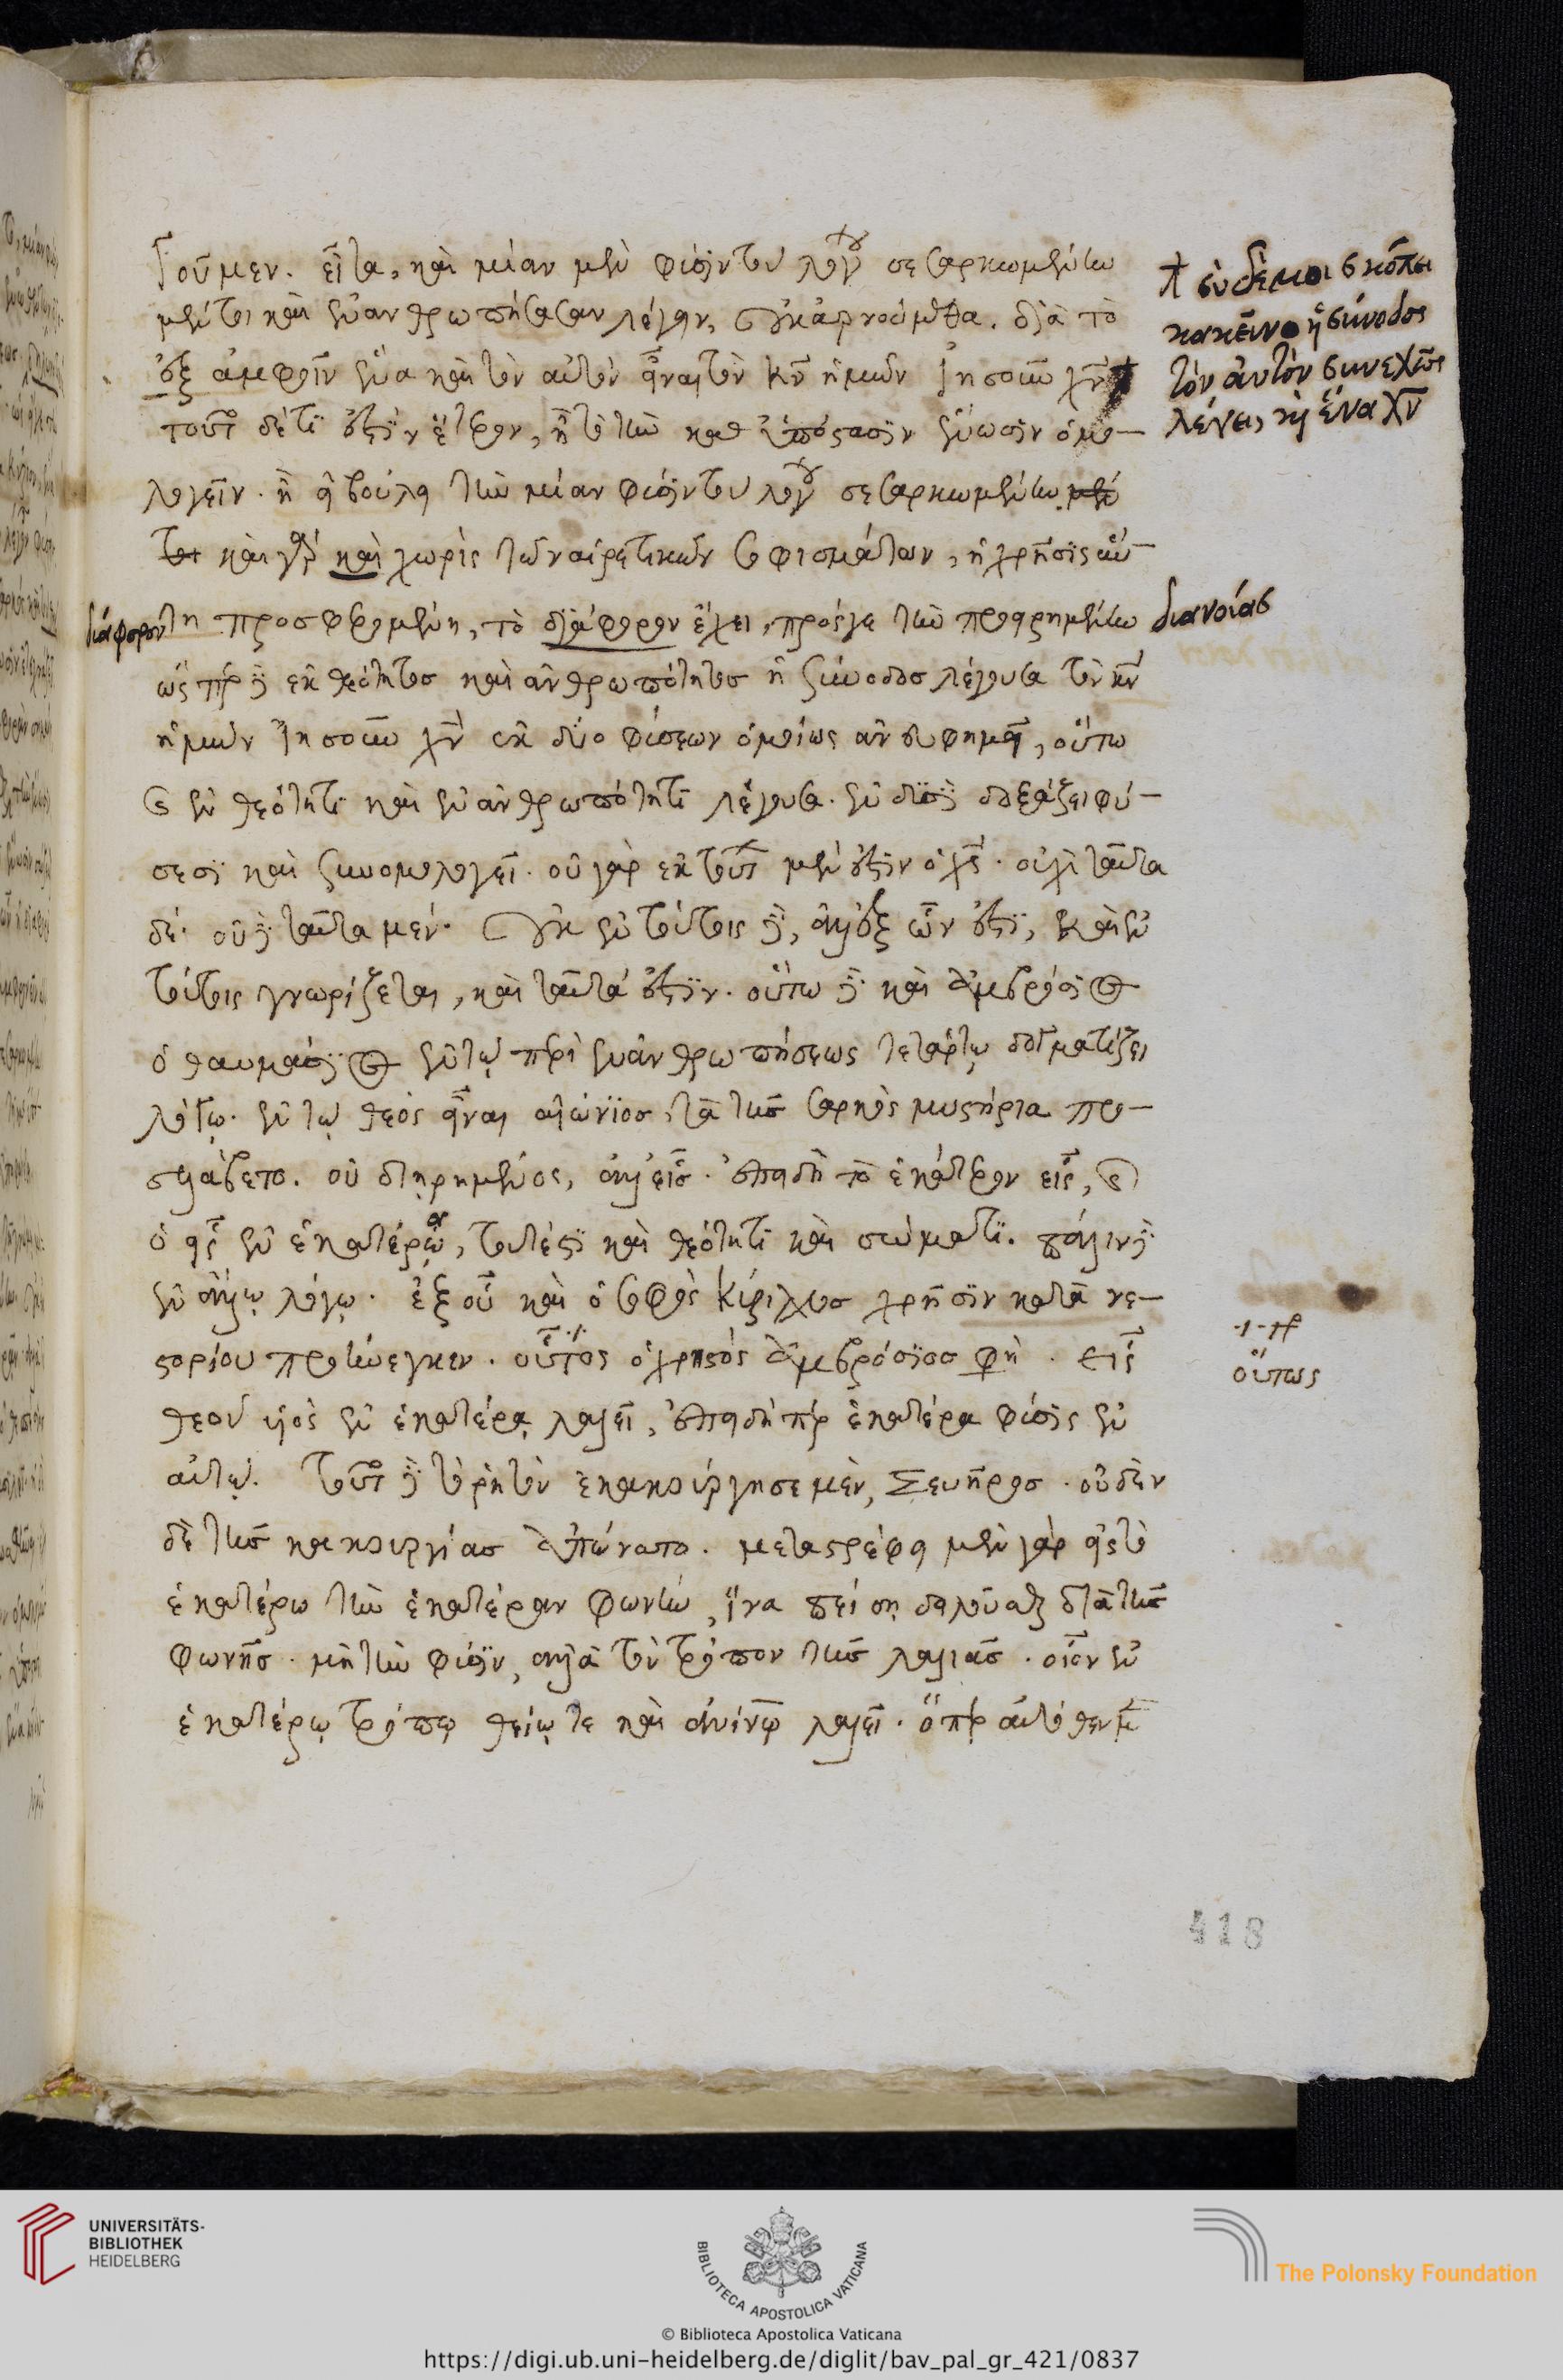 γοῦμεν. εἶτα, καὶ μίαν μὲν φύσιν τοῦ λόγου σεσαρκωμένην
μέντοι καὶ ἐνανθρωπήσασαν λέγειν, οὐκ ἀρνούμεθα. διὰ τὸ
ἐξ ἀμφοῖν ἕνα καὶ τὸν αὐτὸν εἶναι τὸν κν̅ ἡμῶν ἰησοῦν χν̅
τοῦτο δέ τί ἐστιν ἕτερον, ἢ τὸ τὴν καθ ὑπόστασιν ἕνωσιν ὁμο-
λογεῖν. ἢ εἰ βούλει τὴν μίαν φύσιν τοῦ λόγου σεσαρκωμένην
καὶ γὰρ καὶ χωρὶς τῶν αἱρετικῶν σοφισμάτων, ἡ χρῆσις αὕ-
τη προσφερομένη, τὸ διάφορον ἔχει, πρός γε τὴν προειρημένην
ὥσπερ δὲ ἐκ θεότητος καὶ ἀνθρωπότητος ἡ σύνοδος λέγουσα τὸν κν̅
ἡμῶν ἰησοῦν χν̅ ἐκ δύο φύσεων ὁμοίως ἀνευφημεῖ, οὕτω
καὶ ἐν θεότητι καὶ ἐν ἀνθρωπότητι λέγουσα. ἐν δυσὶ δοξάζει φύ-
σεσι καὶ συνομολογεῖ. οὐ γὰρ ἐκ τούτων μέν ἐστιν ὁ χς̅. οὐχὶ ταῦτα
δέ. οὐδὲ ταῦτα μέν. οὐκ ἐν τούτοις δέ, ἀλλ' ἐξ ὧν ἐστι, καὶ ἐν
τούτοις γνωρίζεται, καὶ ταῦτά ἐστιν. οὕτω δὲ καὶ ἀμβρόσιος
ὁ θαυμάσιος ἐν τῷ περὶ ἐνανθρωπήσεως τετάρτῳ δογματίζει
λόγῳ. ἐν τῷ θεὸς εἶναι αἰώνιος, τὰ τῆς σαρκὸς μυστήρια προ-
σελάβετο. οὐ διῃρημένος, ἀλλ' εἷς. ἐπειδὴ τὸ ἑκάτερον εἷς, καὶ
ὁ εἷς ἐν ἑκατέρῳ, τουτέστι καὶ θεότητι καὶ σώματι. πάλιν δὲ
ἐν ἄλλῳ λόγῳ. ἐξ οὗ καὶ ὁ σοφὸς κύριλλος χρῆσιν κατὰ νε-
στορίου προήνεγκεν. οὗτος ὁ χρηστὸς ἀμβρόσιος φη. εἷς
θεοῦ υἱὸς ἐν ἑκατέρᾳ λαλεῖ, ἐπειδήπερ ἑκατέρα φύσις ἐν
αὐτῷ. τοῦτο δὲ τὸ ῥητὸν ἐκακούργησε μὲν, Σευῆρος. οὐδὲν
δὲ τῆς κακουργίας ἀπώνατο. μεταστρέφει μὲν γὰρ εἰς τὸ
ἑκατέρω τὴν ἑκατέραν φωνὴν, ἵνα πείσῃ δηλοῦσθαι διὰ τῆς
φωνῆς. μὴ τὴν φύσιν, ἀλλὰ τὸν τρόπον τῆς λαλιᾶς. οἷον ἐν
ἑκατέρῳ τρόπῳ θείῳ τε καὶ ἀνίνῳ λαλεῖ. ὅπερ αὐτόθεν μ
† σὺ δέ μοι σκόπει
κακεῖνο ἡ σύνοδος
τὸν αὐτὸν συνεχῶς
λέγει, κὶ ἕνα χν̅
διάφορον
διανοίας
οὕτως
418
UNIVERSITÄTS-
BIBLIOTHEK
HEIDELBERG
BIBLIOTECA APOSTOLICA VATICANA
The Polonsky Foundation
© Biblioteca Apostolica Vaticana
https://digi.ub.uni-heidelberg.de/diglit/bav_pal_gr_421/0837